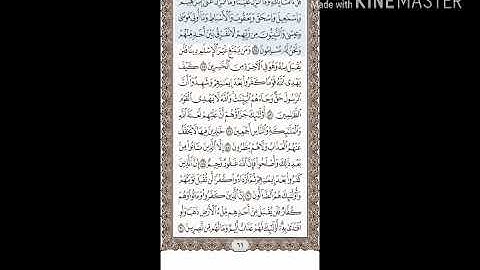 Made with KINEMASTER
قُلْ ءَامَنَّا بِٱللَّهِ وَمَآ أُنزِلَ عَلَيْنَا وَمَآ أُنزِلَ عَلَىٰٓ إِبْرَٰهِيمَ
وَإِسْمَٰعِيلَ وَإِسْحَٰقَ وَيَعْقُوبَ وَٱلْأَسْبَاطِ وَمَآ أُوتِىَ
مُوسَىٰ وَعِيسَىٰ وَٱلنَّبِيُّونَ مِن رَّبِّهِمْ لَا نُفَرِّقُ بَيْنَ أَحَدٍ مِّنْهُمْ
وَنَحْنُ لَهُۥ مُسْلِمُونَ ٨٤ وَمَن يَبْتَغِ غَيْرَ ٱلْإِسْلَٰمِ دِينًا فَلَن
يُقْبَلَ مِنْهُ وَهُوَ فِى ٱلْءَاخِرَةِ مِنَ ٱلْخَٰسِرِينَ ٨٥ كَيْفَ
يَهْدِى ٱللَّهُ قَوْمًا كَفَرُوا۟ بَعْدَ إِيمَٰنِهِمْ وَشَهِدُوٓا۟ أَنَّ
ٱلرَّسُولَ حَقٌّ وَجَآءَهُمُ ٱلْبَيِّنَٰتُ وَٱللَّهُ لَا يَهْدِى ٱلْقَوْمَ
ٱلظَّٰلِمِينَ ٨٦ أُو۟لَٰٓئِكَ جَزَآؤُهُمْ أَنَّ عَلَيْهِمْ لَعْنَةَ ٱللَّهِ
وَٱلْمَلَٰٓئِكَةِ وَٱلنَّاسِ أَجْمَعِينَ ٨٧ خَٰلِدِينَ فِيهَا لَا يُخَفَّفُ
عَنْهُمُ ٱلْعَذَابُ وَلَا هُمْ يُنظَرُونَ ٨٨ إِلَّا ٱلَّذِينَ تَابُوا۟ مِنۢ
بَعْدِ ذَٰلِكَ وَأَصْلَحُوا۟ فَإِنَّ ٱللَّهَ غَفُورٌ رَّحِيمٌ ٨٩ إِنَّ ٱلَّذِينَ
كَفَرُوا۟ بَعْدَ إِيمَٰنِهِمْ ثُمَّ ٱزْدَادُوا۟ كُفْرًا لَّن تُقْبَلَ تَوْبَتُهُمْ
وَأُو۟لَٰٓئِكَ هُمُ ٱلضَّآلُّونَ ٩٠ إِنَّ ٱلَّذِينَ كَفَرُوا۟ وَمَاتُوا۟ وَهُمْ
كُفَّارٌ فَلَن يُقْبَلَ مِنْ أَحَدِهِم مِّلْءُ ٱلْأَرْضِ ذَهَبًا وَلَوِ
ٱفْتَدَىٰ بِهِۦٓ أُو۟لَٰٓئِكَ لَهُمْ عَذَابٌ أَلِيمٌ وَمَا لَهُم مِّن نَّٰصِرِينَ ٩١
٦١